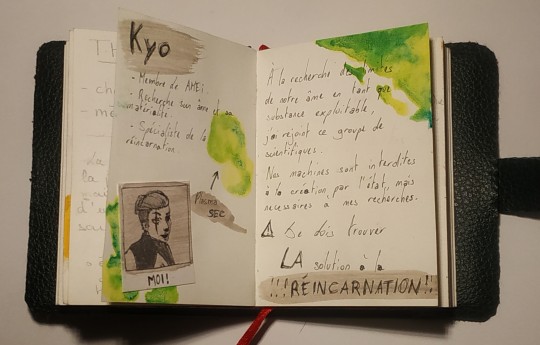 Kyo
- Membre de AME:
- Recherche son âme et sa
matérialité
- Spécialiste de la
réincarnation
Plasma
SEC
MOI!
À la recherche des limites
de notre âme en tant que
substance exploitable,
j'ai rejoint ce groupe de
scientifiques.
Nos machines sont interdites
à la création par l'état, mais
nécessaires à mes recherches.
Je dois trouver
LA solution à la
!!!RÉINCARNATION!!